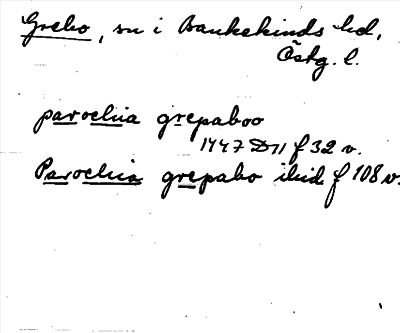 Grebo, sn i Bankekinds hd,
Östg. l.
parochia grepaboo
1447 D11 f 32 v.
Parochia grepabo ibid f 108 v.